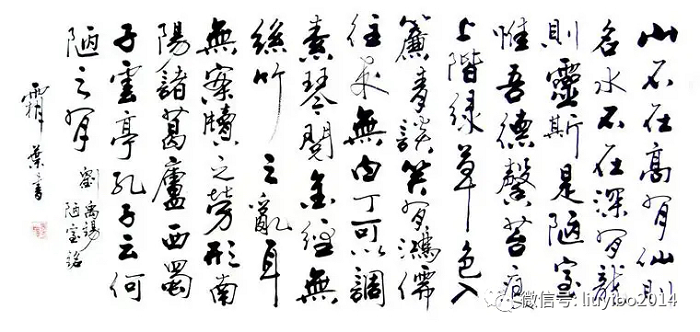 山不在高有仙則
名水不在深有龍
則靈斯是陋室
惟吾德馨苔痕
上階緑草色入
簾青談笑有鴻儒
往来無白丁可以調
素琴閱金經無
絲竹之亂耳
無案牘之勞形南
陽諸葛廬西蜀
子雲亭孔子云何
陋之有
劉禹錫
陋室銘
霜葉書
微信号: liuyibo2014